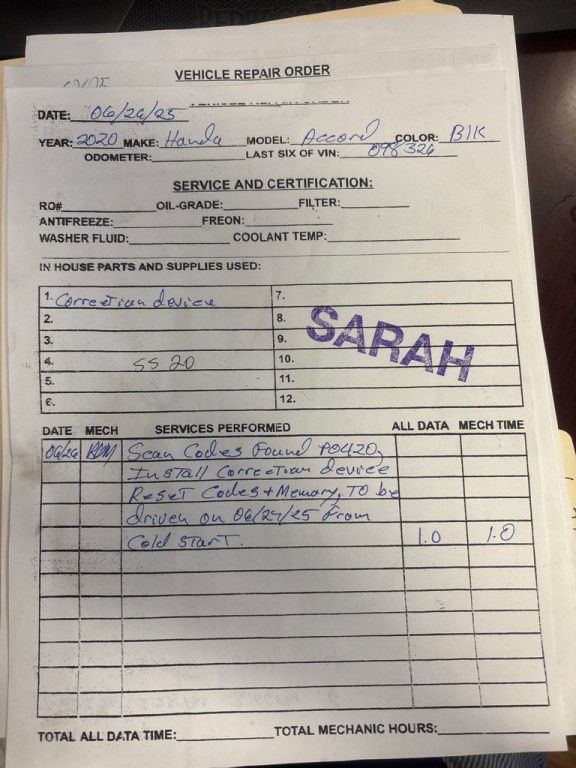 VEHICLE REPAIR ORDER
DATE: 06/26/25
YEAR: 2020 MAKE: Honda MODEL: Accord COLOR: Blk
ODOMETER: LAST SIX OF VIN: 098326
SERVICE AND CERTIFICATION:
RO# OIL-GRADE: FILTER:
ANTIFREEZE: FREON:
WASHER FLUID: COOLANT TEMP:
IN HOUSE PARTS AND SUPPLIES USED:
1. Correction device 7.
2. 8.
3. 9.
4. SS 20 10.
5. 11.
6. 12.
SARAH
DATE MECH SERVICES PERFORMED ALL DATA MECH TIME
06/26 Scan Codes Found P0420,
Install Correction device
Reset Codes + Memory, To be
driven on 06/27/25 From
Cold Start. 1.0 1.0
TOTAL ALL DATA TIME: TOTAL MECHANIC HOURS: